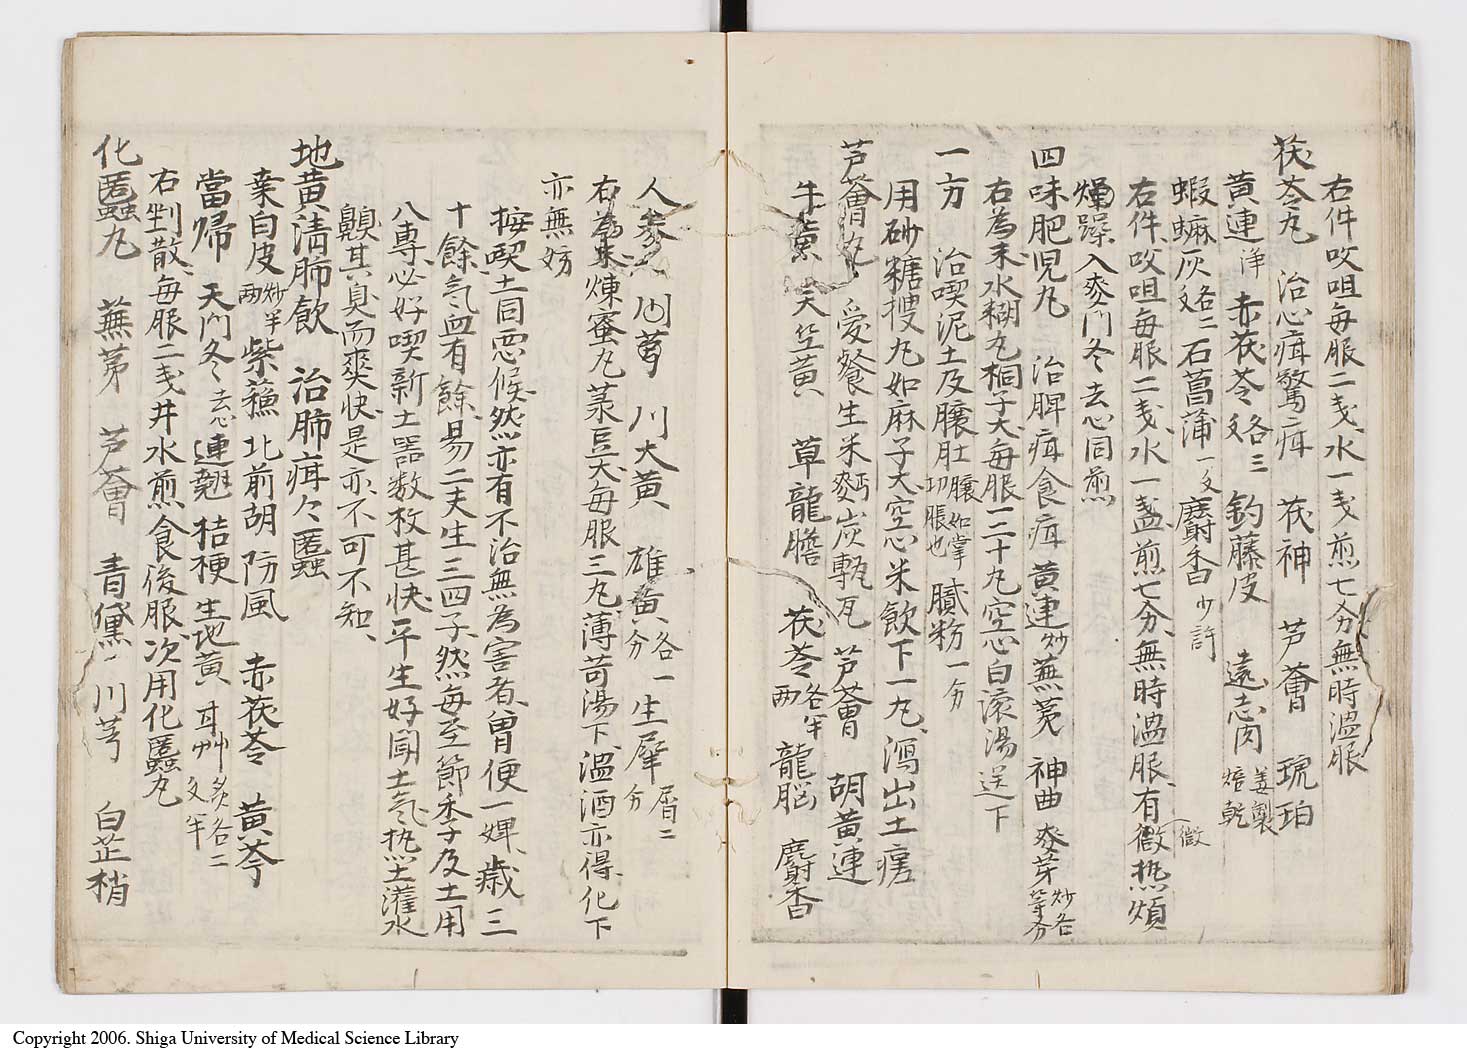 右件㕮咀毎服二戔水一戔煎七分無時温服
茯苓丸　治心疳驚疳　茯神　芦薈　琥珀
黄連 浄　赤茯苓 各三文　釣藤皮　遠志肉 姜製焙乾
蝦蟆灰 各二文　石菖蒲 一文　麝香 少許
右件㕮咀毎服二戔水一盞煎七分無時温服有微熱煩
躁入麥門冬去心同煎
四味肥児丸　治脾疳食疳 黄連 炒 蕪荑 神曲 麥芽 炒各等分
右為末水糊丸桐子大毎服一二十丸空心白滚湯送下
一方　治喫泥土及臁肚 臁如掌切脹也　膩粉 一分
用砂糖搜丸如麻子大空心米飲下一丸瀉出土瘥
芦薈丸　愛餐生米麪炭甎瓦　芦薈　胡黄連
牛黄　天竺黄　草龍膽　茯苓 各半両　龍脳　麝香
人参　川芎　川大黄　雄黄 各一分　生犀 屑二分
右為末煉蜜丸菉豆大毎服三丸薄苛湯下温酒亦得化下
亦無妨
按喫土同悪候然亦有不治無為害者曽便一婢歳三
十餘気血有餘易二夫生三四子然毎至節季及土用
八専必好喫新土器数枚甚快平生好聞土気熱土灌水
齅其臭而爽快是亦不可不知
地黄清肺飲　治肺疳々䘌
桒白皮 炒半両　紫蘓 北前胡 防風　赤茯苓　黄芩
當帰　天門冬 去心　連翹 桔梗 生地黄 甘艸 炙各二文半
右剉散毎服二戔井水煎食後服次用化䘌丸
化䘌丸　蕪荑　芦薈　青黛　川芎　白芷梢
Copyright 2006. Shiga University of Medical Science Library